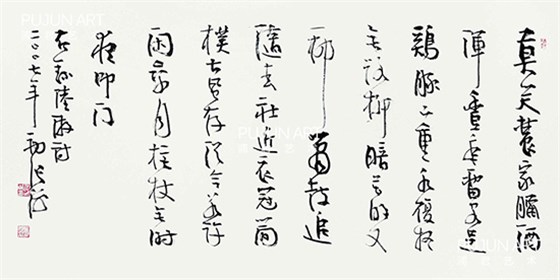 莫笑農家臘酒
渾豐年留客足
鷄豚山重水復疑
無路柳暗花明又
一邨簫鼓追
隨春社近衣冠簡
樸古風存從今若許
閑乘月拄杖無時
夜叩門
陸游詩
二〇〇七年
PUJUN ART
PUJUN ART
PUJUN ART